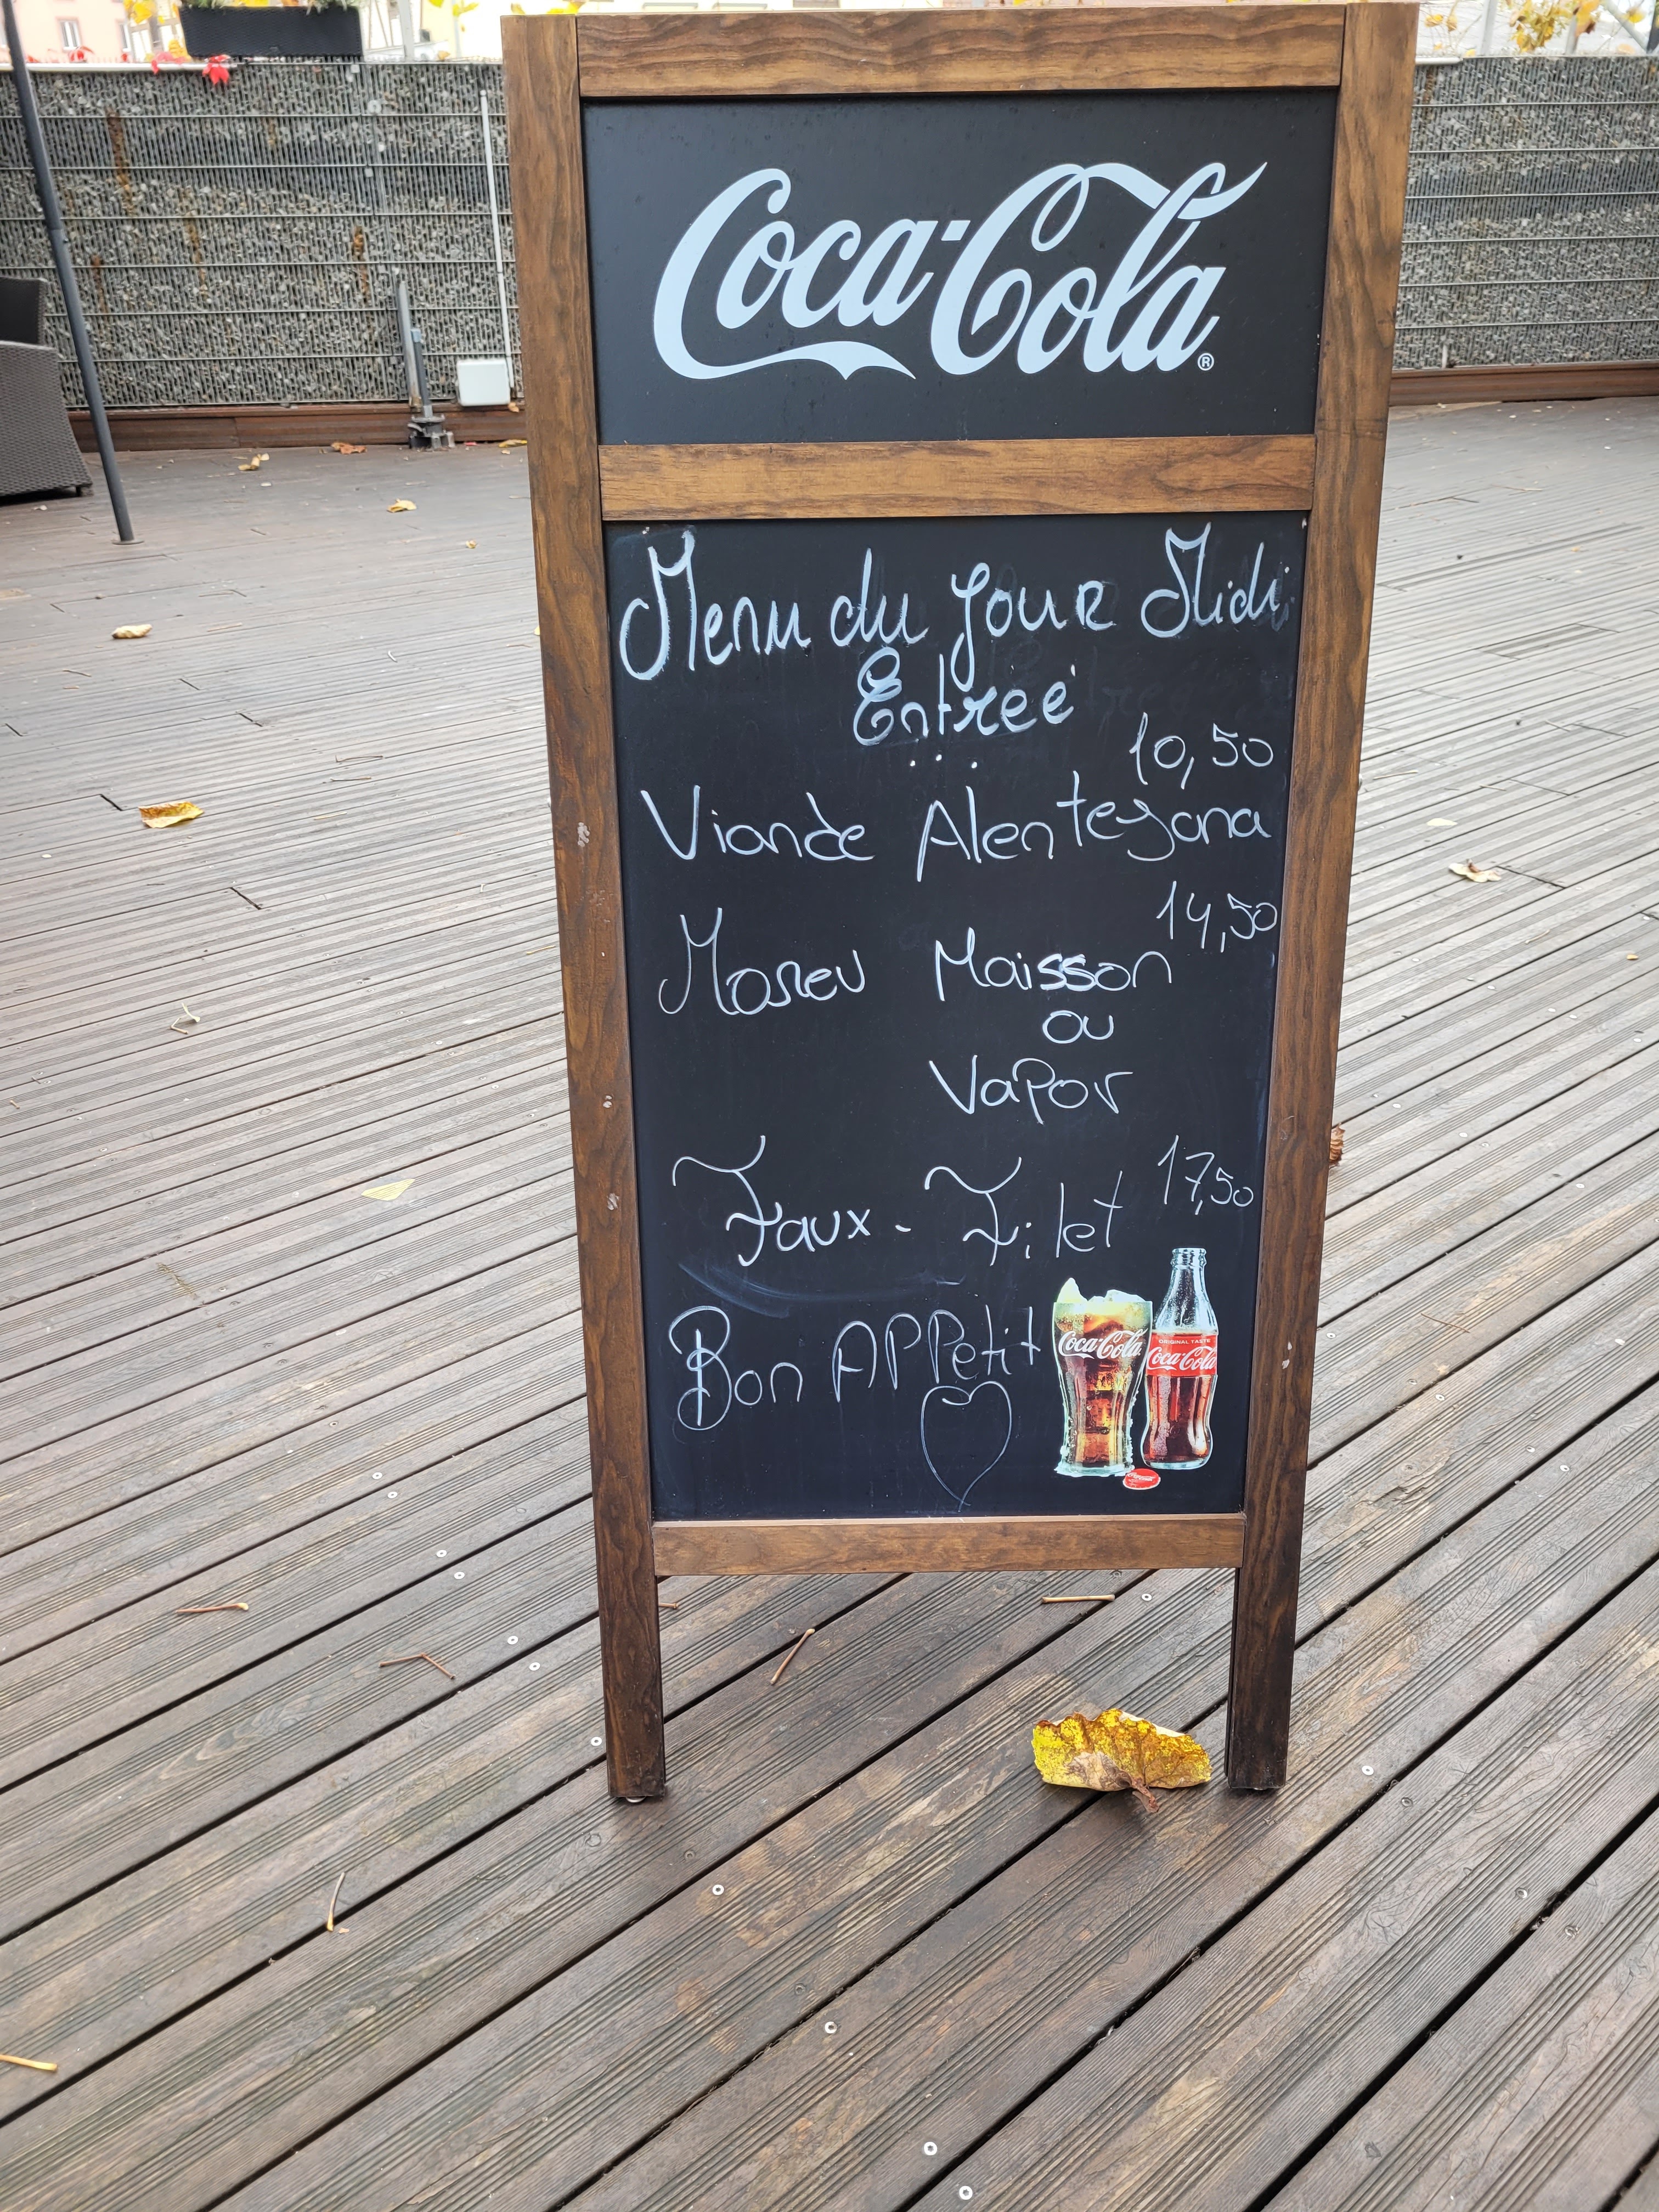 Coca-Cola®
Menu du Jour Midi
Entreé
...
10,50
Viande Alentejana
14,50
Moreu Maisson
ou
Vapor
17,50
Faux-Filet
Bon APPetit
Coca-Cola
ORIGINAL TASTE
Coca-Cola